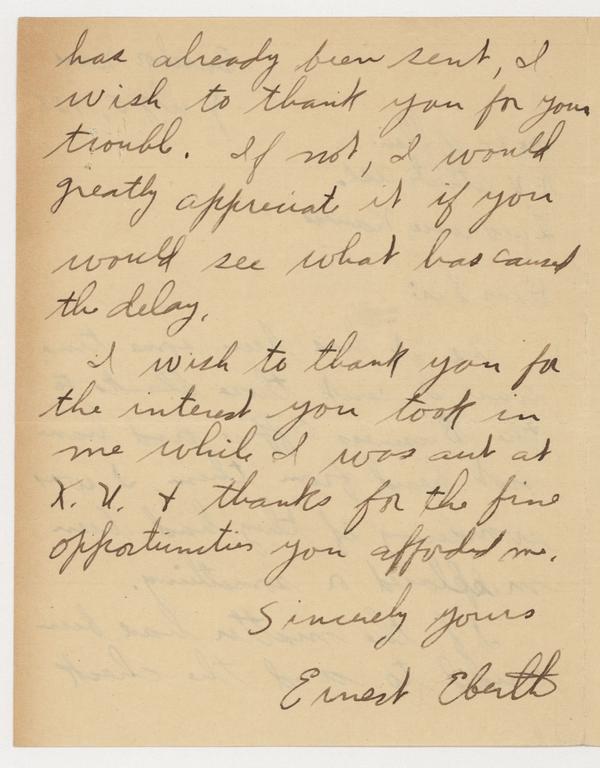 has already been sent, I
wish to thank you for your
trouble. If not, I would
greatly appreciate it if you
would see what has caused
the delay.
I wish to thank you for
the interest you took in
me while I was out at
X. U. & thanks for the fine
opportunities you afforded me.
Sincerely yours
Ernest Eberth